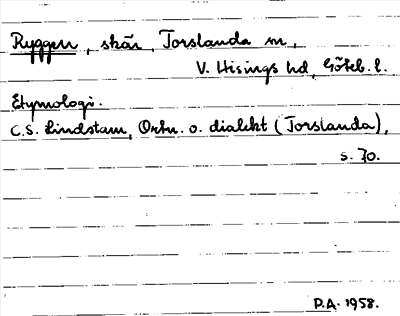 Ryggen, skär, Torslanda sn,
V. Hisings hd, Göteb. l.
Etymologi.
C.S. Lindstam, Ortn. o. dialekt (Torslanda),
s. 70.
P.A. 1958.